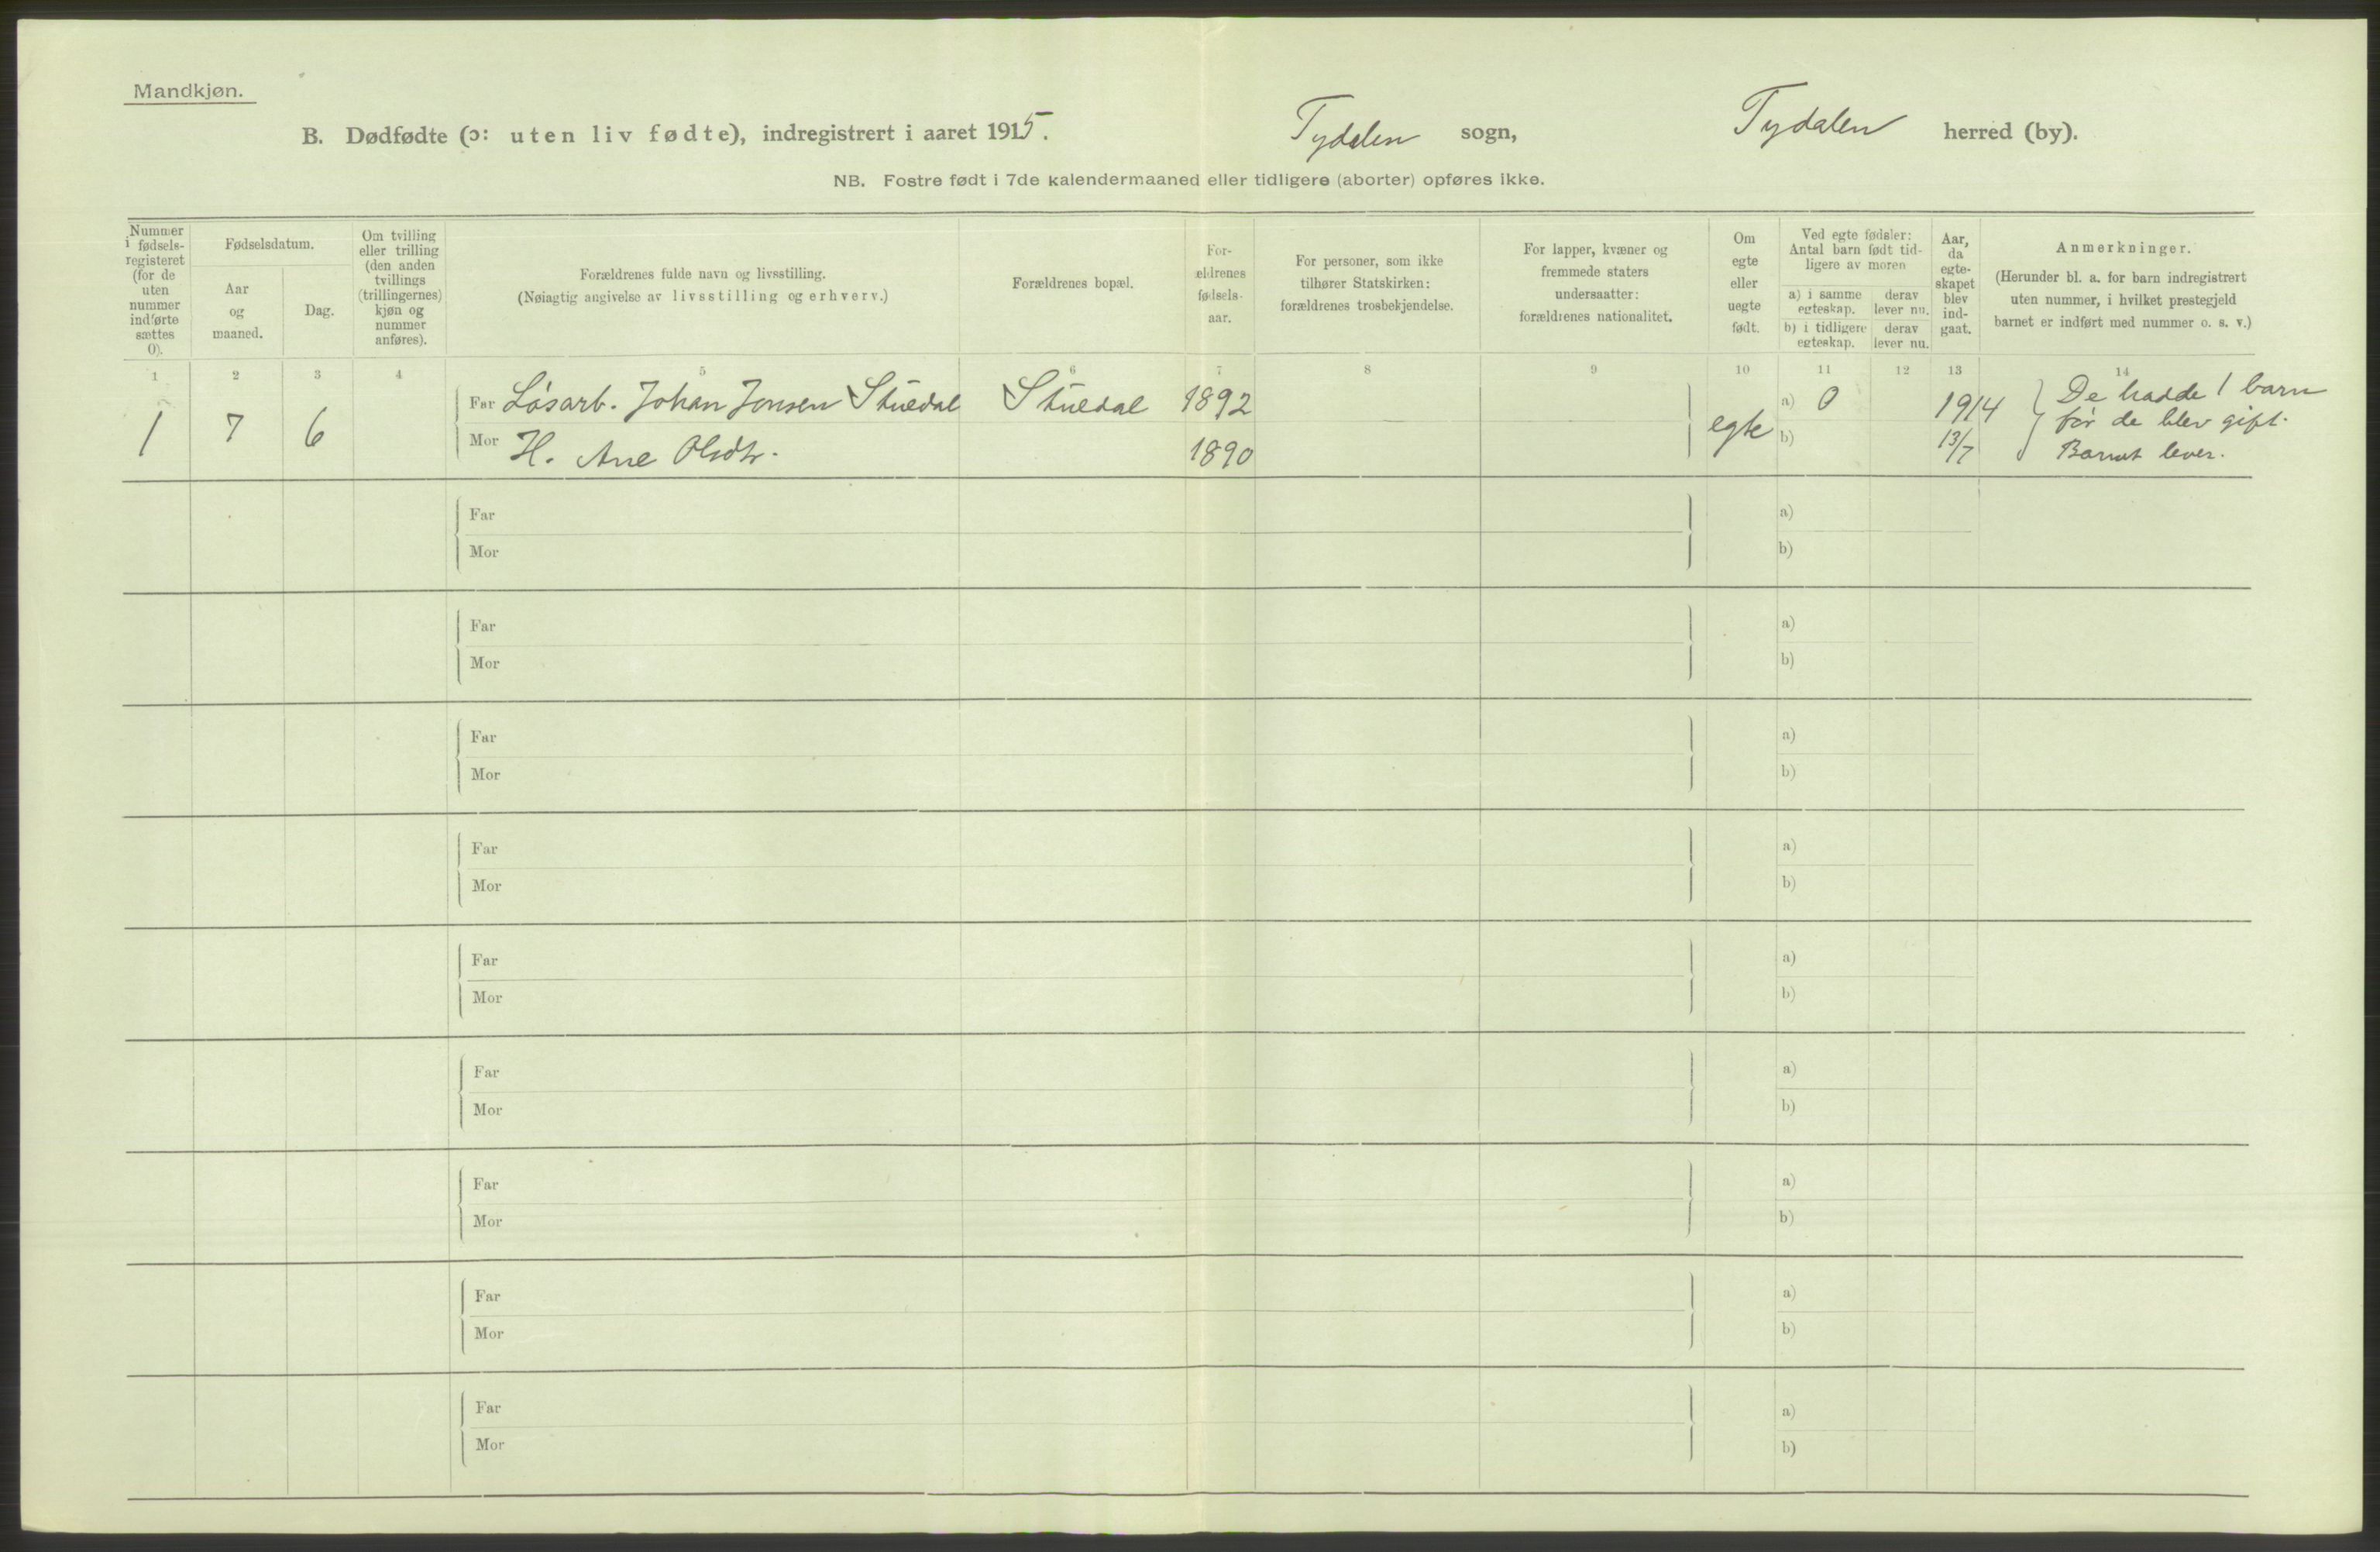 Mandkjøn.
B. Dødfødte (ɔ: uten liv fødte), indregistrert i aaret 1915. Tydalen sogn, Tydalen herred (by).
NB. Fostre født i 7de kalendermaaned eller tidligere (aborter) opføres ikke.
Nummer i fødsels-registeret (for de uten nummer indførte sættes 0).
Fødselsdatum.
Aar og maaned.
Dag.
Om tvilling eller trilling (den anden tvillings (trillingernes) kjøn og nummer anføres).
Forældrenes fulde navn og livsstilling.
(Nøiagtig angivelse av livsstilling og erhverv.)
Forældrenes bopæl.
For-ældrenes fødsels-aar.
For personer, som ikke tilhører Statskirken: forældrenes trosbekjendelse.
For lapper, kvæner og fremmede staters undersaatter: forældrenes nationalitet.
Om egte eller uegte født.
Ved egte fødsler: Antal barn født tid-ligere av moren
a) i samme egteskap. derav lever nu.
b) i tidligere egteskap. derav lever nu.
Aar, da egte-skapet blev ind-gaat.
Anmerkninger.
(Herunder bl. a. for barn indregistrert uten nummer, i hvilket prestegjeld barnet er indført med nummer o. s. v.)
1 2 3 4 5 6 7 8 9 10 11 12 13 14
1 7 6 Far Løsarb. Johan Jonsen Stuedal Stuedal 1892 egte a) 0 1914 De hadde 1 barn
før de blev gift.
Mor H. Ane Olsdtr. 1890 b) 13/7 Barnet lever.
Far a)
Mor b)
Far a)
Mor b)
Far a)
Mor b)
Far a)
Mor b)
Far a)
Mor b)
Far a)
Mor b)
Far a)
Mor b)
Far a)
Mor b)
Far a)
Mor b)